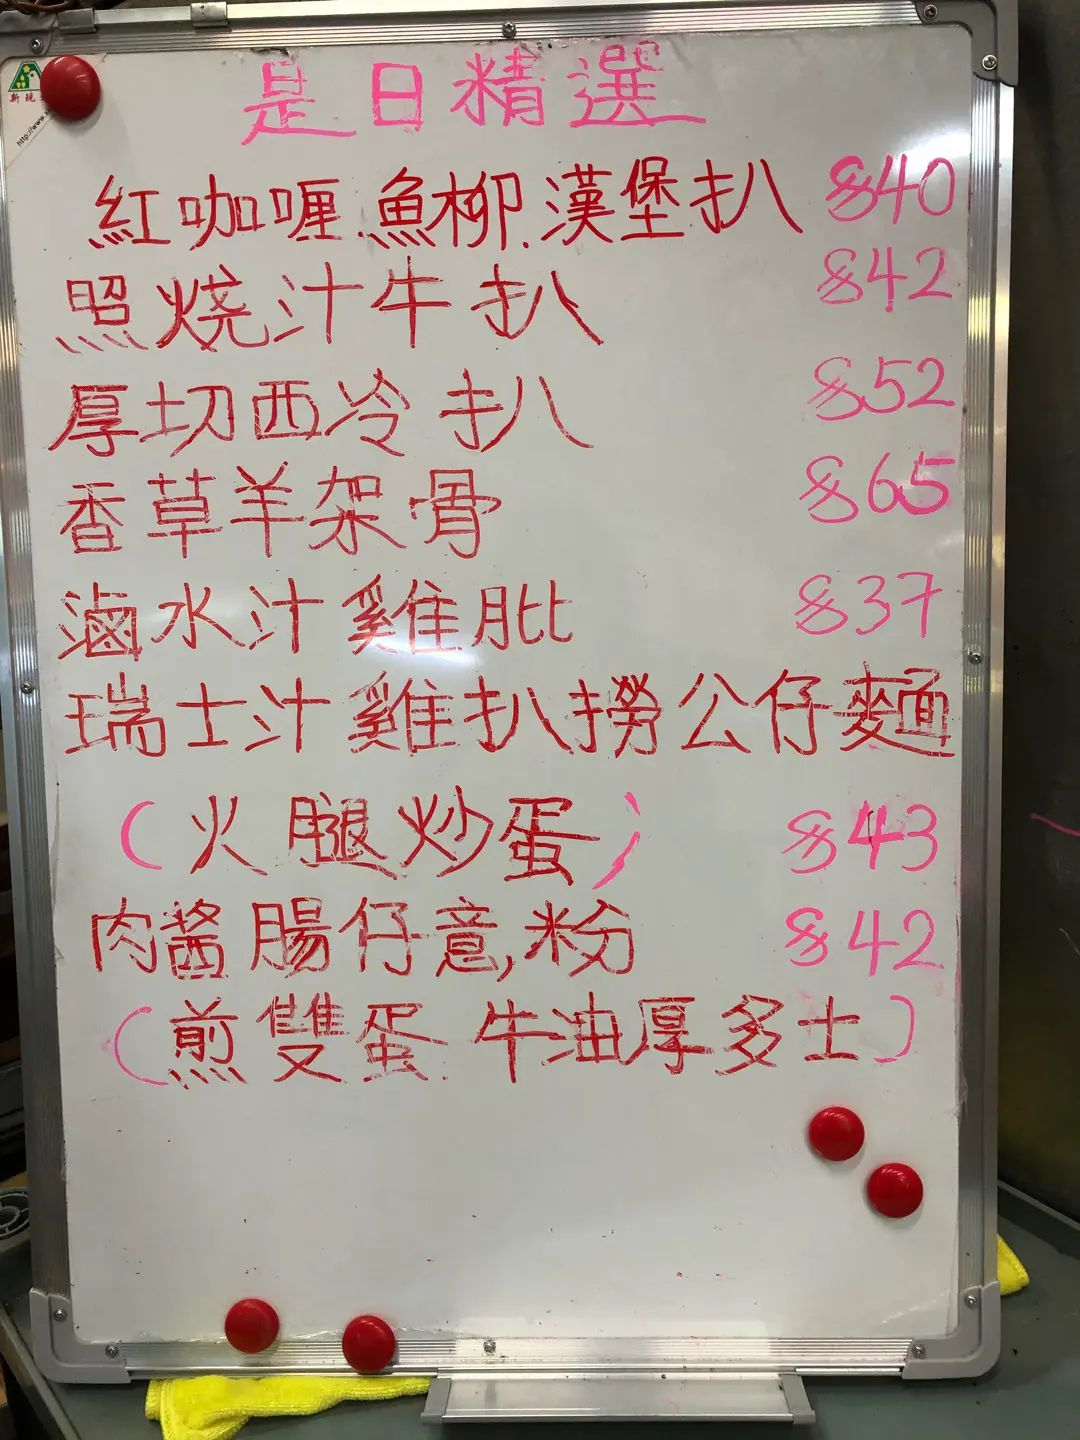 是日精選
紅咖喱.魚柳.漢堡扒 $40
照燒汁牛扒 $42
厚切西冷扒 $52
香草羊架骨 $65
滷水汁雞肶 $37
瑞士汁雞扒撈公仔麵
(火腿炒蛋) $43
肉醬腸仔意,粉 $42
(煎雙蛋 牛油厚多士)